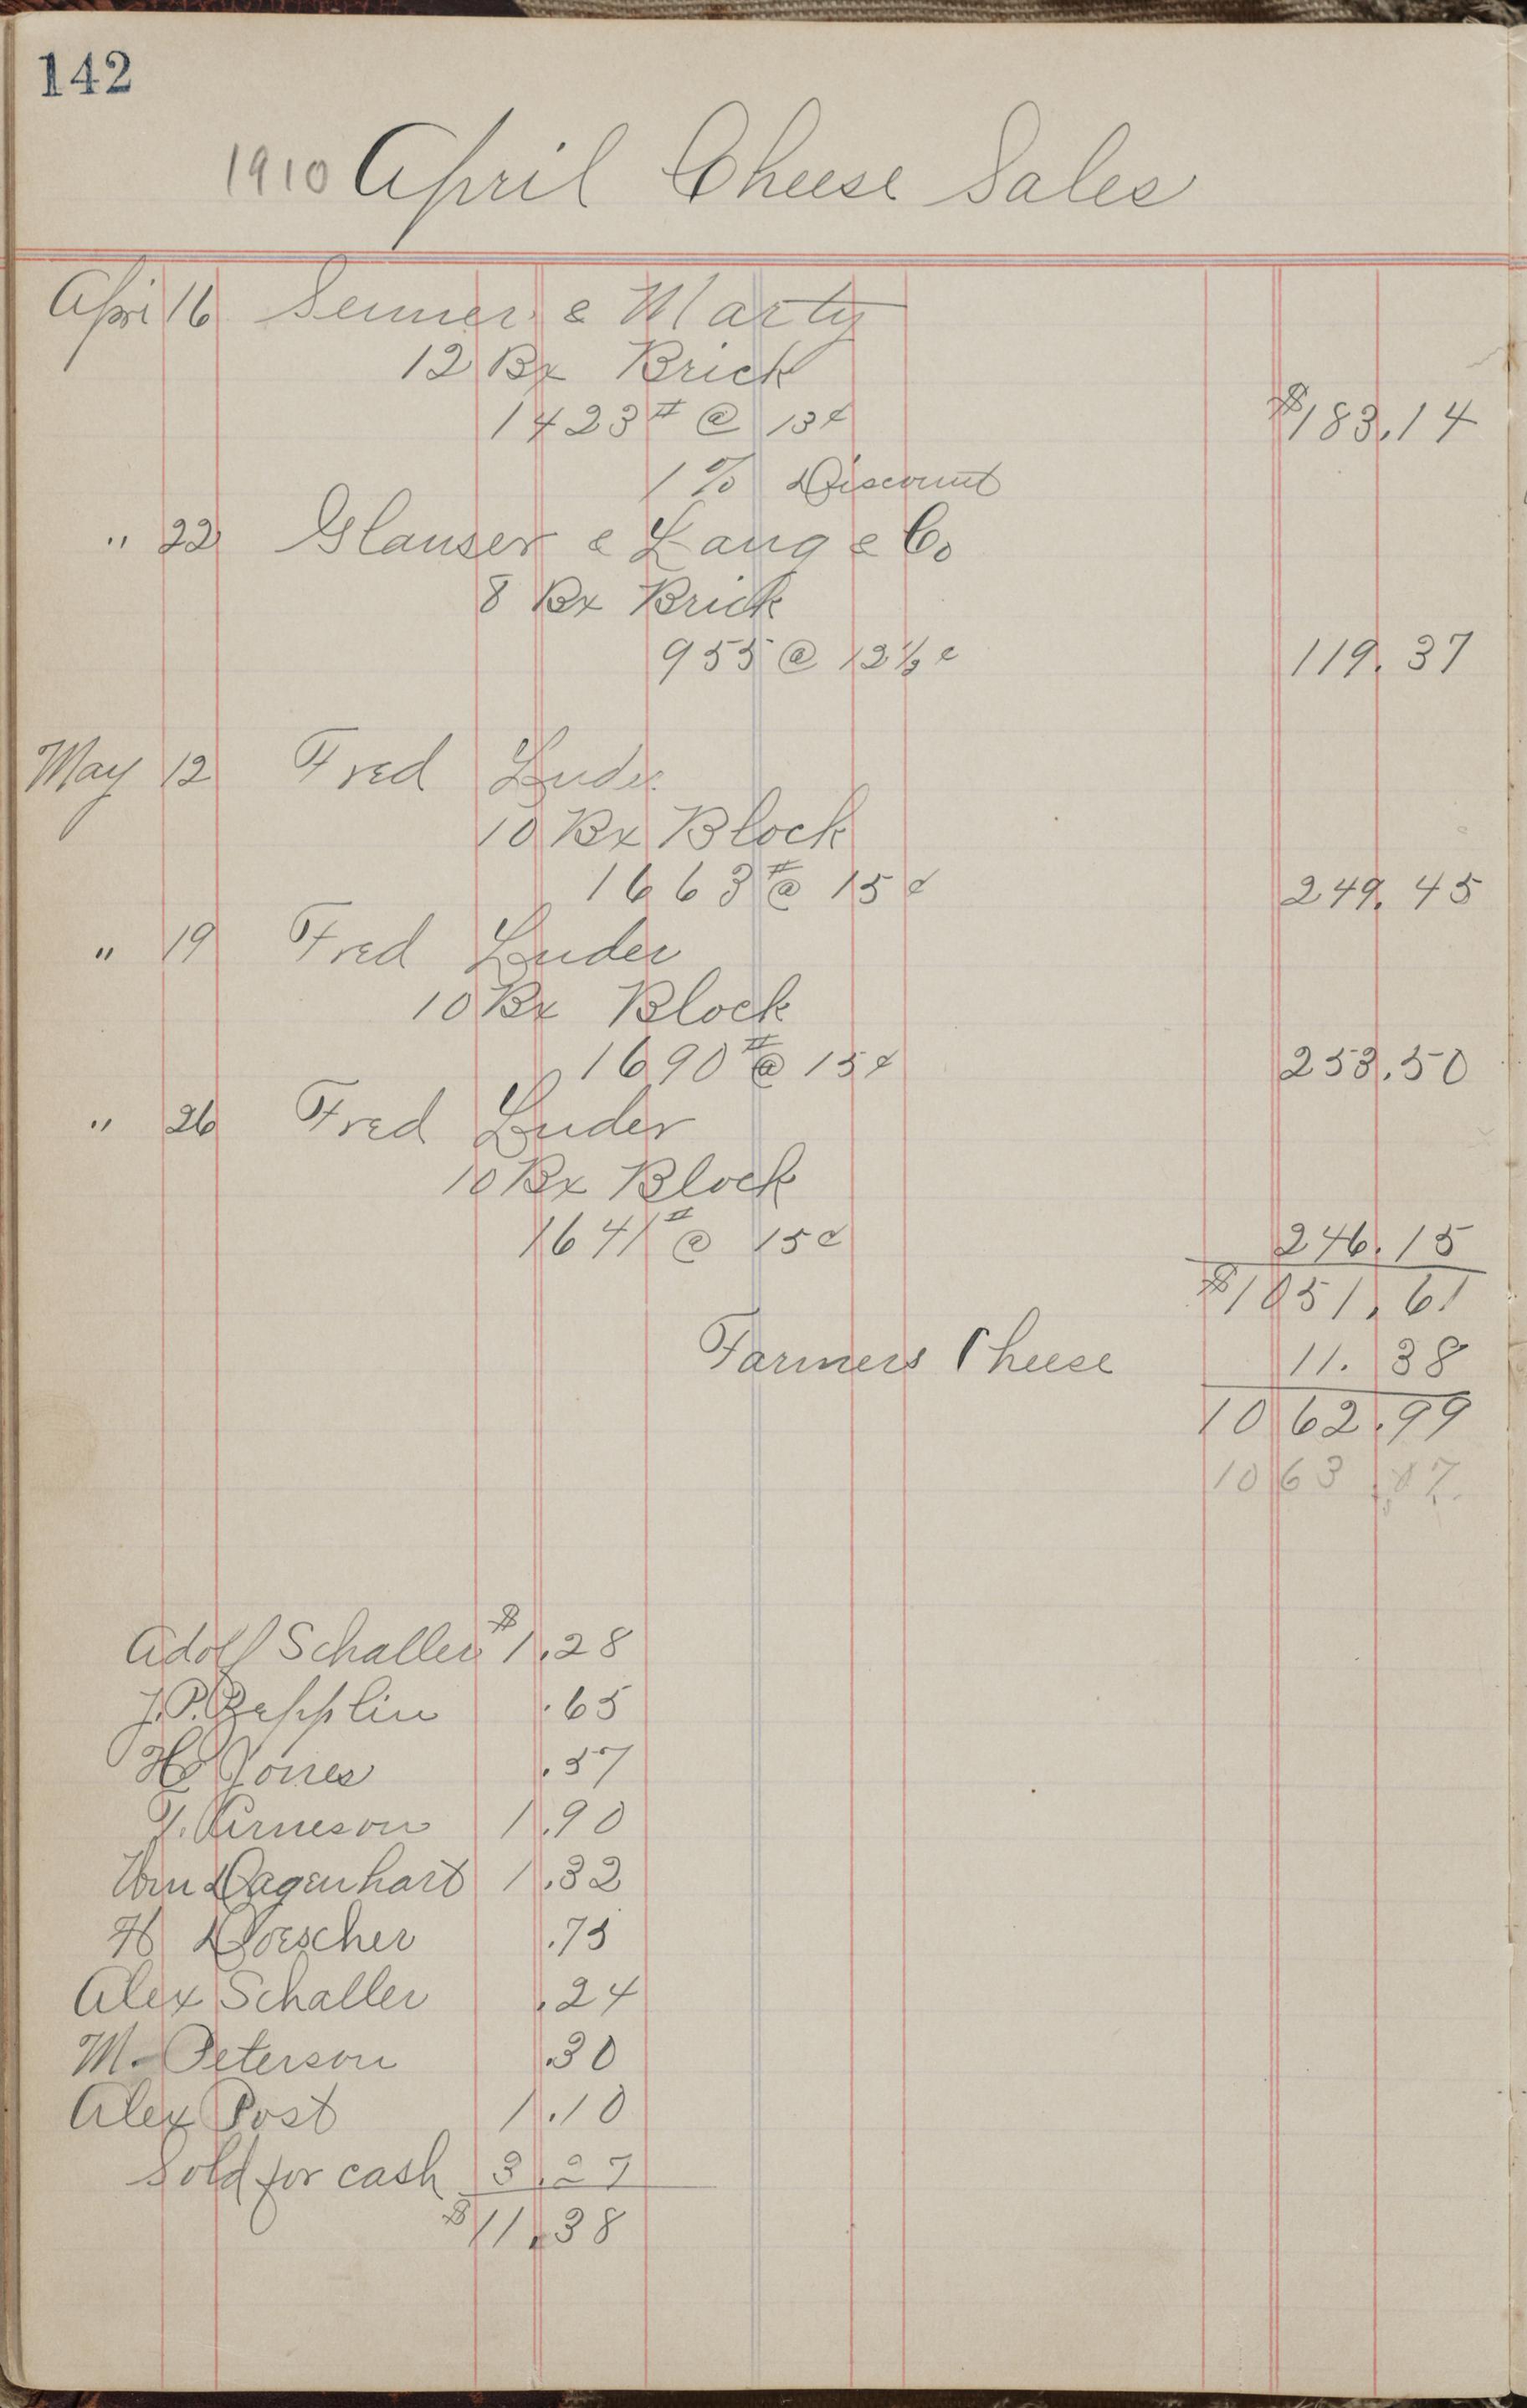 142
1910 April Cheese Sales
Apri 16 Senner & Marty
12 Bx Brick
1423# @ 13¢ $183.14
1% Discount
" 22 Glauser & Lang & Co
8 Bx Brick
955 @ 12½¢ 119.37
May 12 Fred Luder
10 Bx Block
1663# @ 15¢ 249.45
" 19 Fred Luder
10 Bx Block
1690# @ 15¢ 253.50
" 26 Fred Luder
10 Bx Block
1641# @ 15¢ 246.15
$1051.61
Farmers Cheese 11.38
1062.99
1063
Adolf Schaller $1.28
J.P. Zepplin .65
H Jones .57
T. Arneson 1.90
Wm Dagenhart 1.32
H Doescher .75
Alex Schaller .24
M. Peterson .30
Alex Post 1.10
Sold for cash 3.27
$11.38